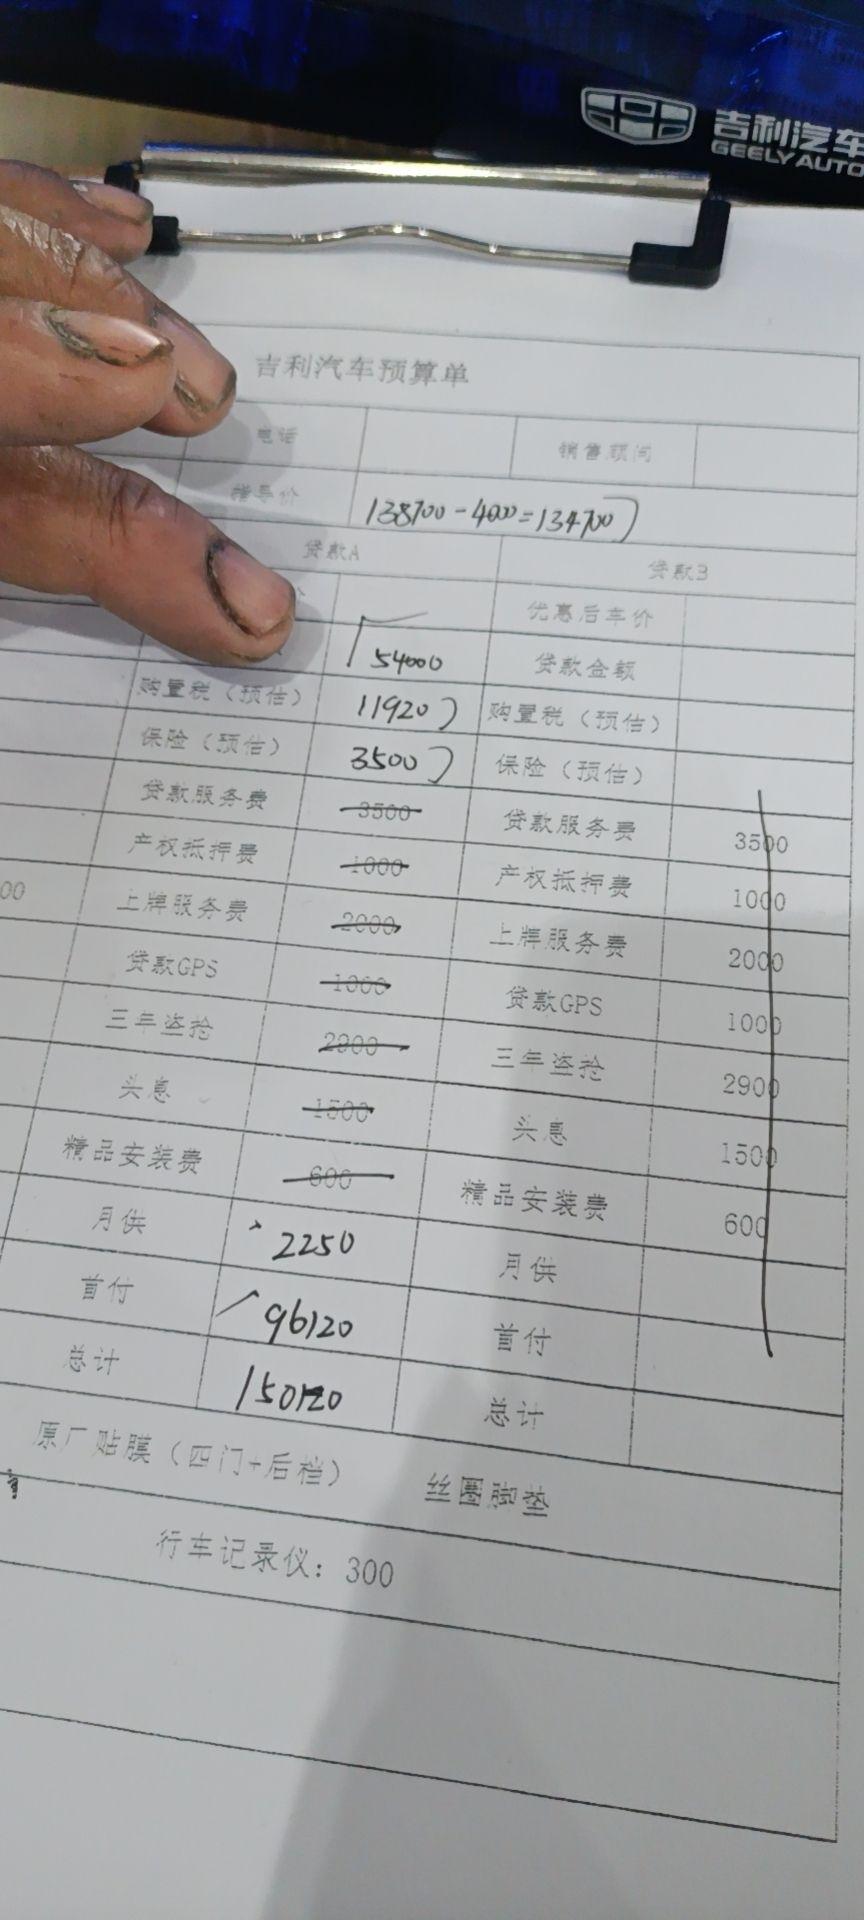 吉利汽车
GEELY AUTO
吉利汽车预算单
电话 销售顾问
指导价 138700-4000=134700
贷款A 贷款B
优惠后车价
54000 贷款金额
购置税（预估） 11920 购置税（预估）
保险（预估） 3500 保险（预估）
贷款服务费 3500 贷款服务费 3500
产权抵押费 1000 产权抵押费 1000
00 上牌服务费 2000 上牌服务费 2000
贷款GPS 1000 贷款GPS 1000
三年盗抢 2900 三年盗抢 2900
头息 1500 头息 1500
精品安装费 600 精品安装费 600
月供 2250 月供
首付 96120 首付
总计 150120 总计
原厂贴膜（四门+后档） 丝圈脚垫
行车记录仪：300